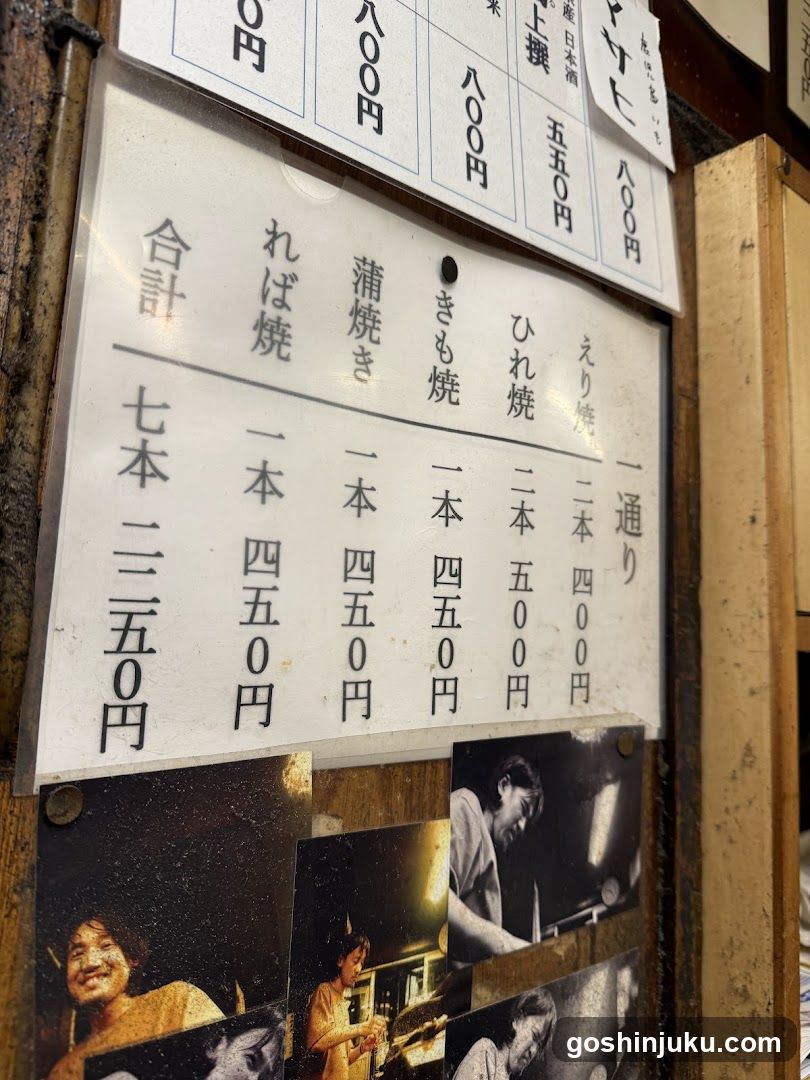 サヒ
鹿児島 いも
八〇〇円
産 日本酒
上撰
五五〇円
米
八〇〇円
八〇〇円
〇円
一通り
えり焼 二本 四〇〇円
ひれ焼 二本 五〇〇円
きも焼 一本 四五〇円
蒲焼き 一本 四五〇円
れば焼 一本 四五〇円
合計 七本 二二五〇円
goshinjuku.com